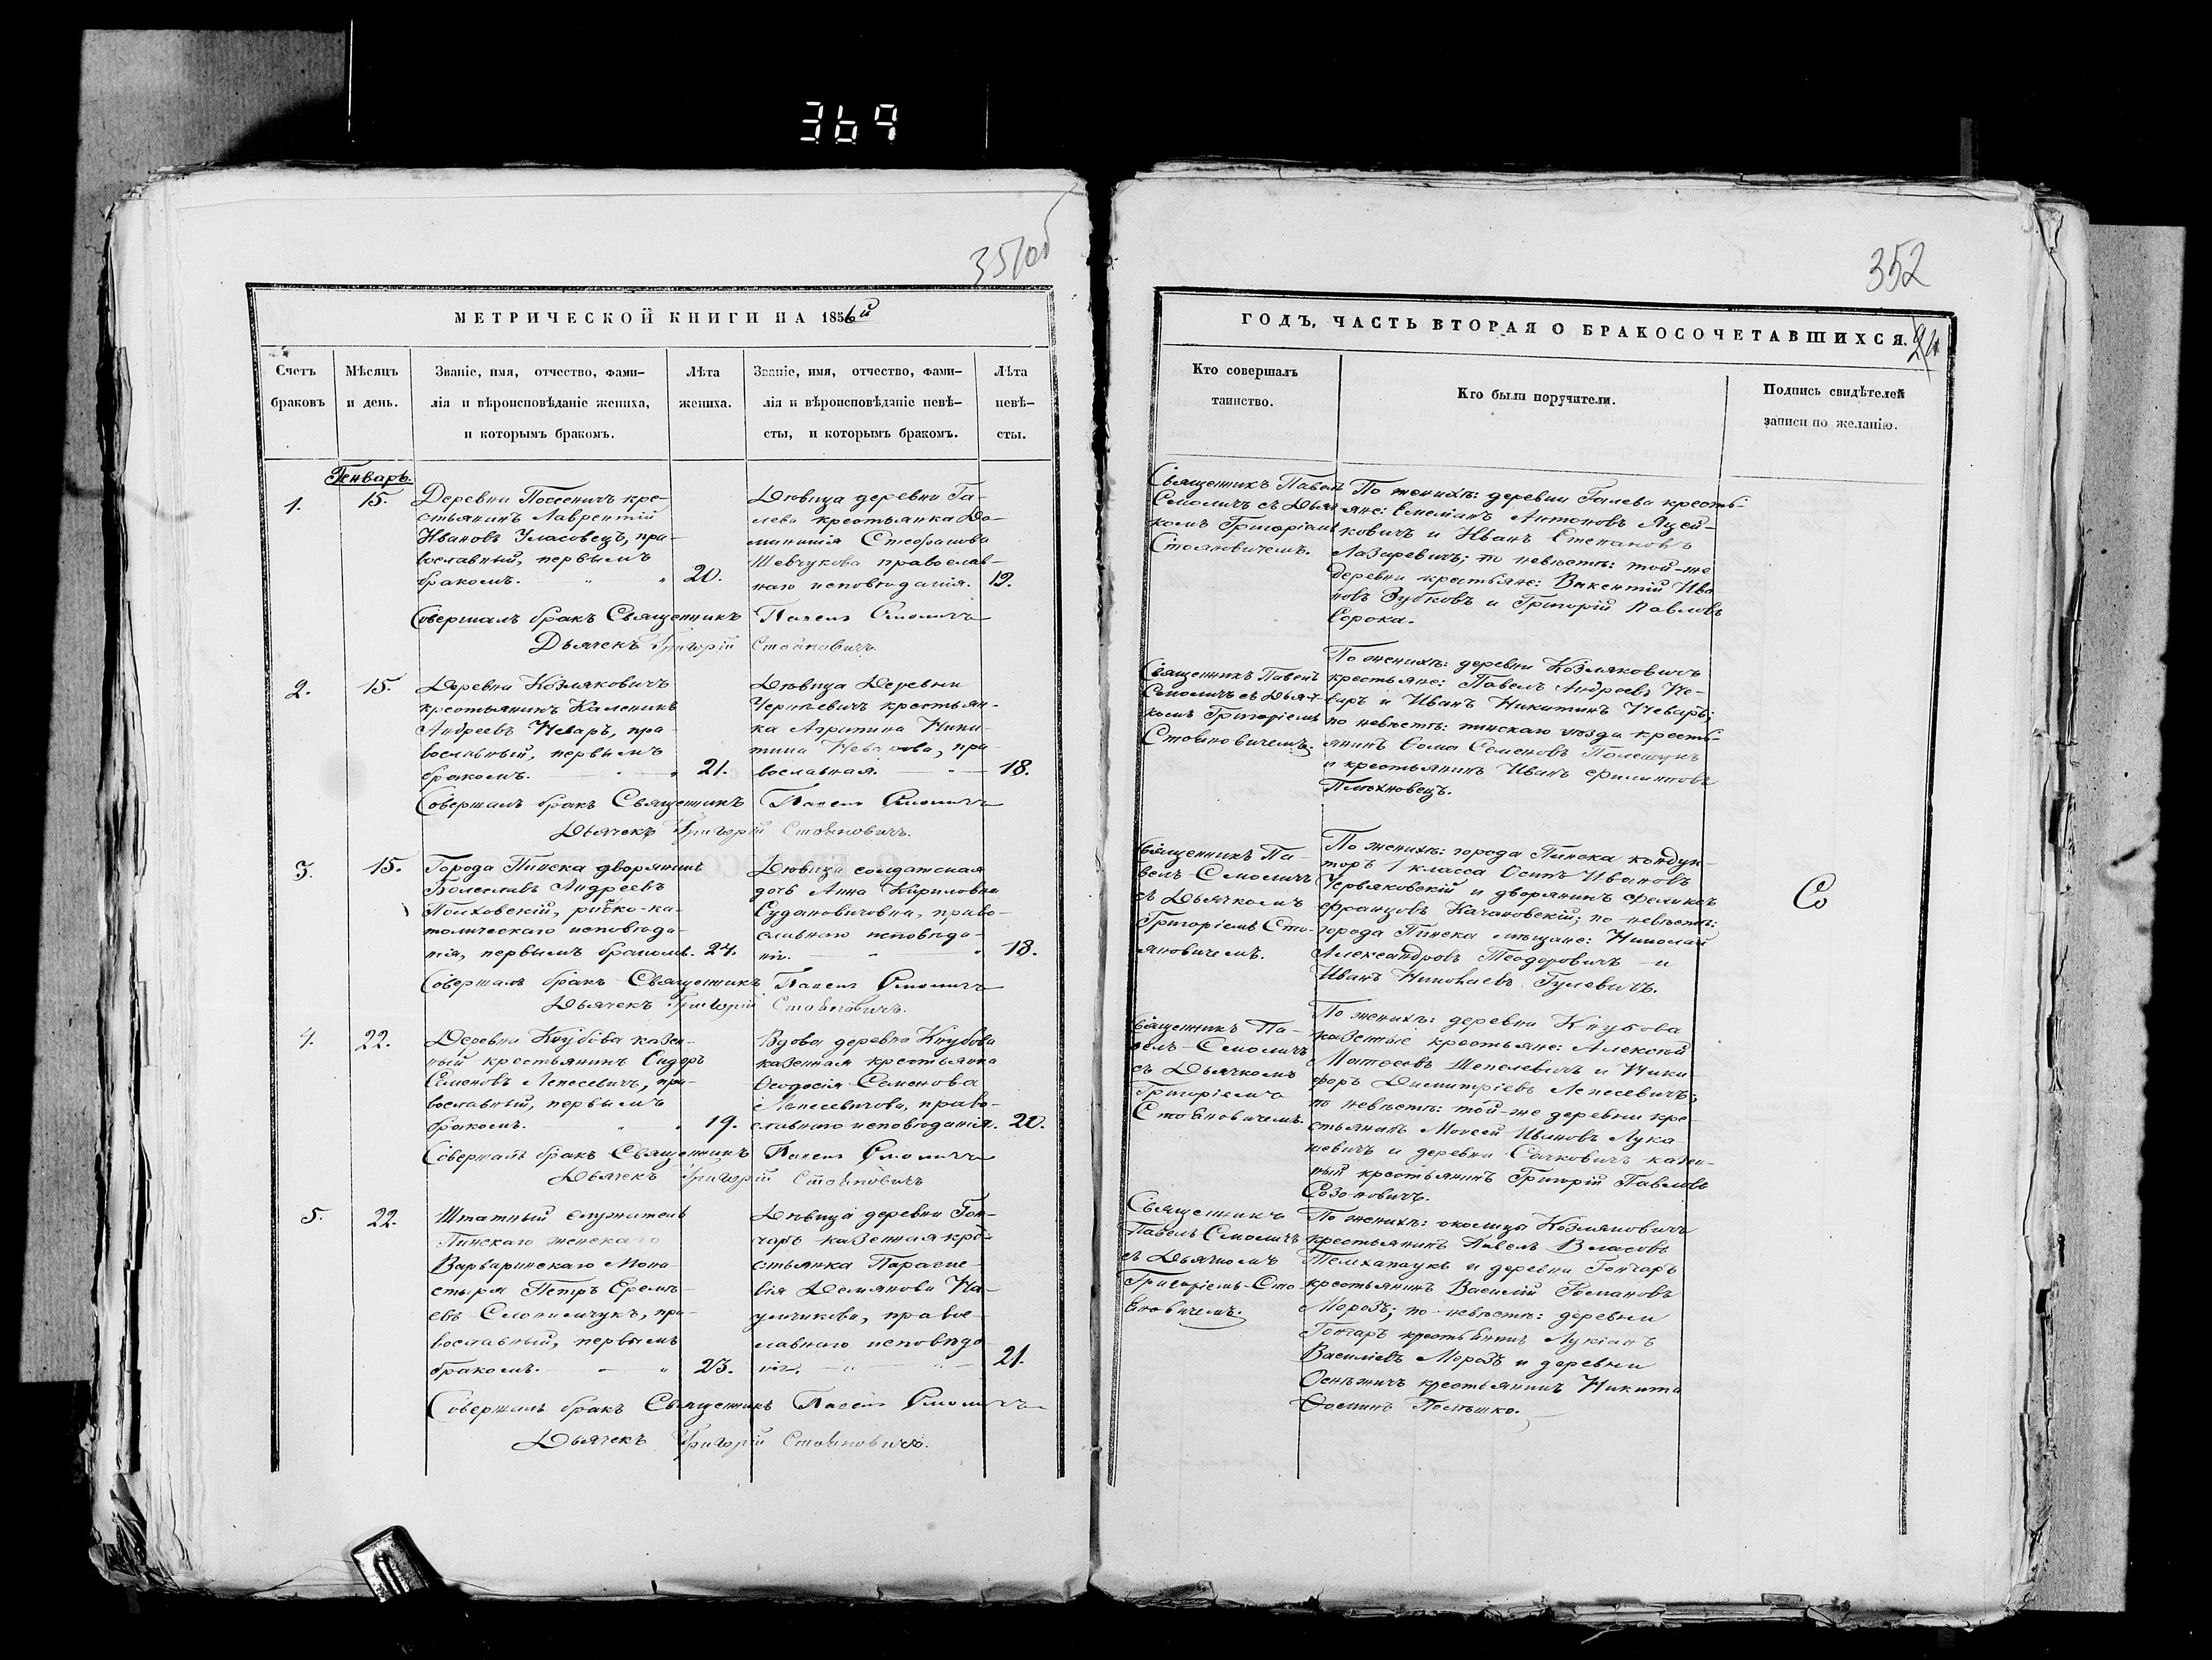 369
351об
МЕТРИЧЕСКОЙ КНИГИ НА 1856й
Счетъ браковъ
Мѣсяцъ и день.
Званіе, имя, отчество, фами-
лія и вѣроисповѣданіе жениха,
и которымъ бракомъ.
Лѣта жениха.
Званіе, имя, отчество, фами-
лія и вѣроисповѣданіе невѣ-
сты, и которымъ бракомъ.
Лѣта невѣ-
сты.
Генварь.
1.
15.
Деревни Посеничъ кре-
стьянинъ Лаврентій
Ивановъ Уласовецъ, пра-
вославный, первымъ
бракомъ. 20.
Дѣвица деревни Га-
лева крестьянка До-
миникія Стефанова
Шевчукова православ-
наго исповѣданія. 19.
Совершалъ бракъ Священникъ Павелъ Смоличъ
Дьячекъ Григорій Стояновичъ.
2.
15.
Деревни Козляковичъ
крестьянинъ Каленикъ
Андреевъ Чеваръ, пра-
вославный, первымъ
бракомъ. 21.
Дѣвица Деревни
крестьян-
ка Агрипина Ники-
тина Чеварова, пра-
вославная. 18.
Совершалъ бракъ Священникъ Павелъ Смоличъ
Дьячекъ Григорій Стояновичъ.
3.
15.
Города Пинска дворянинъ
Болеславъ Андреевъ
римско-ка-
толическаго исповѣда-
нія, первымъ бракомъ. 24.
Дѣвица солдатская
дочь Анна Кирилова
Судановичовна, право-
славнаго исповѣда-
нія. 18.
Совершалъ бракъ Священникъ Павелъ Смоличъ
Дьячекъ Григорій Стояновичъ.
4.
22.
Деревни Кнубова казен-
ный крестьянинъ Сидоръ
Семеновъ Лепесевичъ, пра-
вославный, первымъ
бракомъ. 19.
Вдова деревни Кнубова
казенная крестьянка
Ѳеодосія Семенова
Лепесевичова, право-
славнаго исповѣданія. 20.
Совершалъ бракъ Священникъ Павелъ Смоличъ
Дьячекъ Григорій Стояновичъ
5.
22.
Штатный служитель
Пинскаго женскаго
Варваринскаго Мона-
стыря Петръ Еремѣ-
евъ Слонимчукъ, пра-
вославный, первымъ
бракомъ. 23.
Дѣвица деревни Гон-
чаръ казенная кре-
стьянка Параске-
вія Демянова На-
умчикова, правос-
лавнаго исповѣда
нія. 21.
Совершалъ бракъ Священникъ Павелъ Смоличъ
Дьячекъ Григорій Стояновичъ.
352
ГОДЪ, ЧАСТЬ ВТОРАЯ О БРАКОСОЧЕТАВШИХСЯ.
Кто совершалъ
таинство.
Кто были поручители.
Подпись свидѣтелей
записи по желанію.
Священникъ Павелъ
Смоличъ съ Дьяч
комъ Григоріемъ
Стояновичемъ.
По женихѣ: деревни Галева кресть-
яне: Емеліанъ Антоновъ Яцей-
ковичъ и Иванъ Степановъ
Лазаревичъ; по невѣстѣ: той-же
деревни крестьяне: Викентій Ива
новъ Зубковъ и Григорій Павловъ
Сорока.
Священникъ Павелъ
Смоличъ съ Дьяч-
комъ Григоріемъ
Стояновичемъ.
По женихѣ: деревни Козляковичъ
крестьяне: Павелъ Андреевъ Че-
варъ и Иванъ Никитинъ Чеваръ;
по невѣстѣ: пинскаго уѣзда кресть-
янинъ Ѳома Семеновъ Полещукъ
и крестьянинъ Иванъ Филиповъ
Плохновецъ.
Священникъ Па-
велъ Смоличъ
съ Дьячкомъ
Григоріемъ Сто-
яновичемъ.
По женихѣ: города Пинска кондук-
торъ 1 класса Осипъ Ивановъ
Червяковскій и дворянинъ Феликсъ
Францовъ Качановскій; по невѣстѣ:
города Пинска мѣщане: Николай
Александровъ Теодоровичъ и
Иванъ Николаевъ Гулевичъ.
Священникъ Па-
велъ Смоличъ
съ Дьячкомъ
Григоріемъ
Стояновичемъ.
По женихѣ: деревни Кнубова
казенные крестьяне: Алексѣй
Матѳеевъ Шепелевичъ и Ники-
форъ Димитріевъ Лепесевичъ;
по невѣстѣ: той-же деревни кре-
стьянинъ Моисей Ивановъ Лука
шевичъ и деревни Сачковичъ казен-
ный крестьянинъ Григорій Павловъ
Созоновичъ.
Священникъ
Павелъ Смоличъ
съ Дьячкомъ
Григоріемъ Сто
яновичемъ.
По женихѣ: околицы Козляковичъ
крестьянинъ Павелъ Власовъ
и деревни Гончаръ
крестьянинъ Василій Романовъ
Морозъ; по невѣстѣ: деревни
Гончаръ крестьянинъ Лукіанъ
Василіевъ Морозъ и деревни
Оснѣжичъ крестьянинъ Никита
Ѳоминъ Полѣшко.